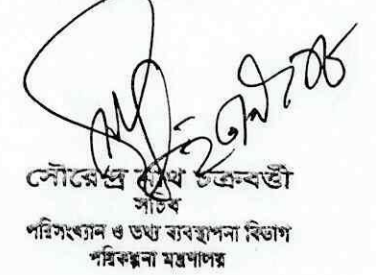 সৌরেন্দ্র নাথ চক্রবর্ত্তী
সচিব
পরিসংখ্যান ও তথ্য ব্যবস্থাপনা বিভাগ
পরিকল্পনা মন্ত্রণালয়